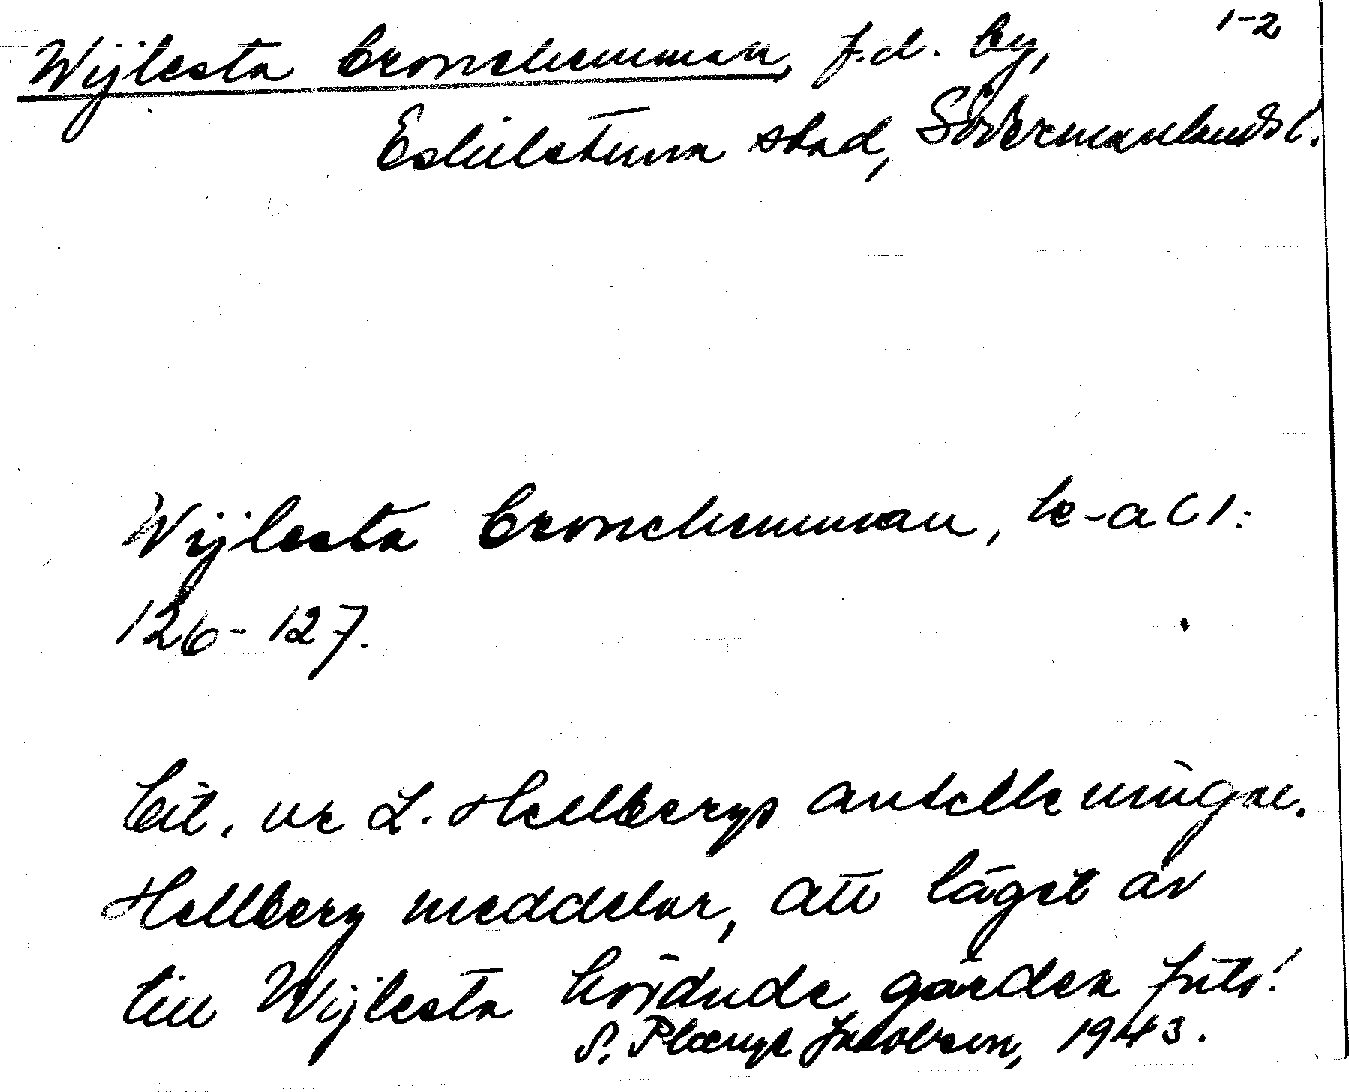 1-2
Wijlesta Cronehemman, f.d. by,
Eskilstuna stad, Södermanlands l.
Wijlesta Cronehemman, k-a C1:
126-127.
Cit. ur L. Hellbergs anteckningar.
Hellberg meddelar, att läget av
till Wijlesta hörande gården
S. Jakobsson, 1943.